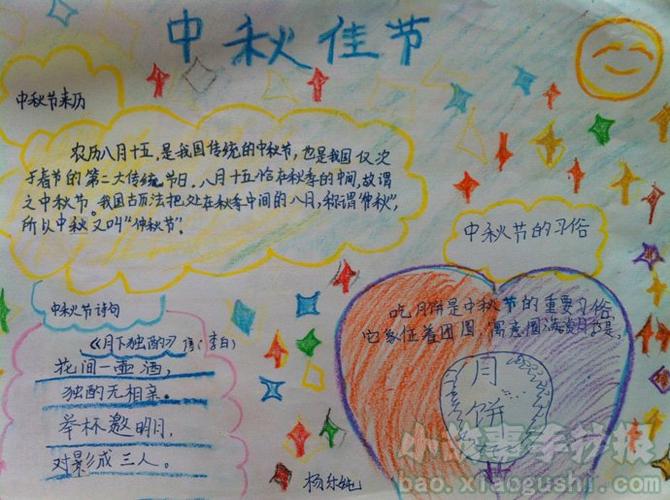 中秋佳节
中秋节来历
农历八月十五,是我国传统的中秋节,也是我国仅次
于春节的第二大传统节日。八月十五恰在秋季的中间,故谓
之中秋节。我国古历法把处在秋季中间的八月,称谓“仲秋”,
所以中秋又叫“仲秋节”。
中秋节的习俗
吃月饼是中秋节的重要习俗
它象征着团圆,寓意圆满
月
饼
中秋节诗句
《月下独酌》 唐(李白)
花间一壶酒,
独酌无相亲。
举杯邀明月,
对影成三人。
杨乐
小故事手抄报
bao.xiaogushi.com